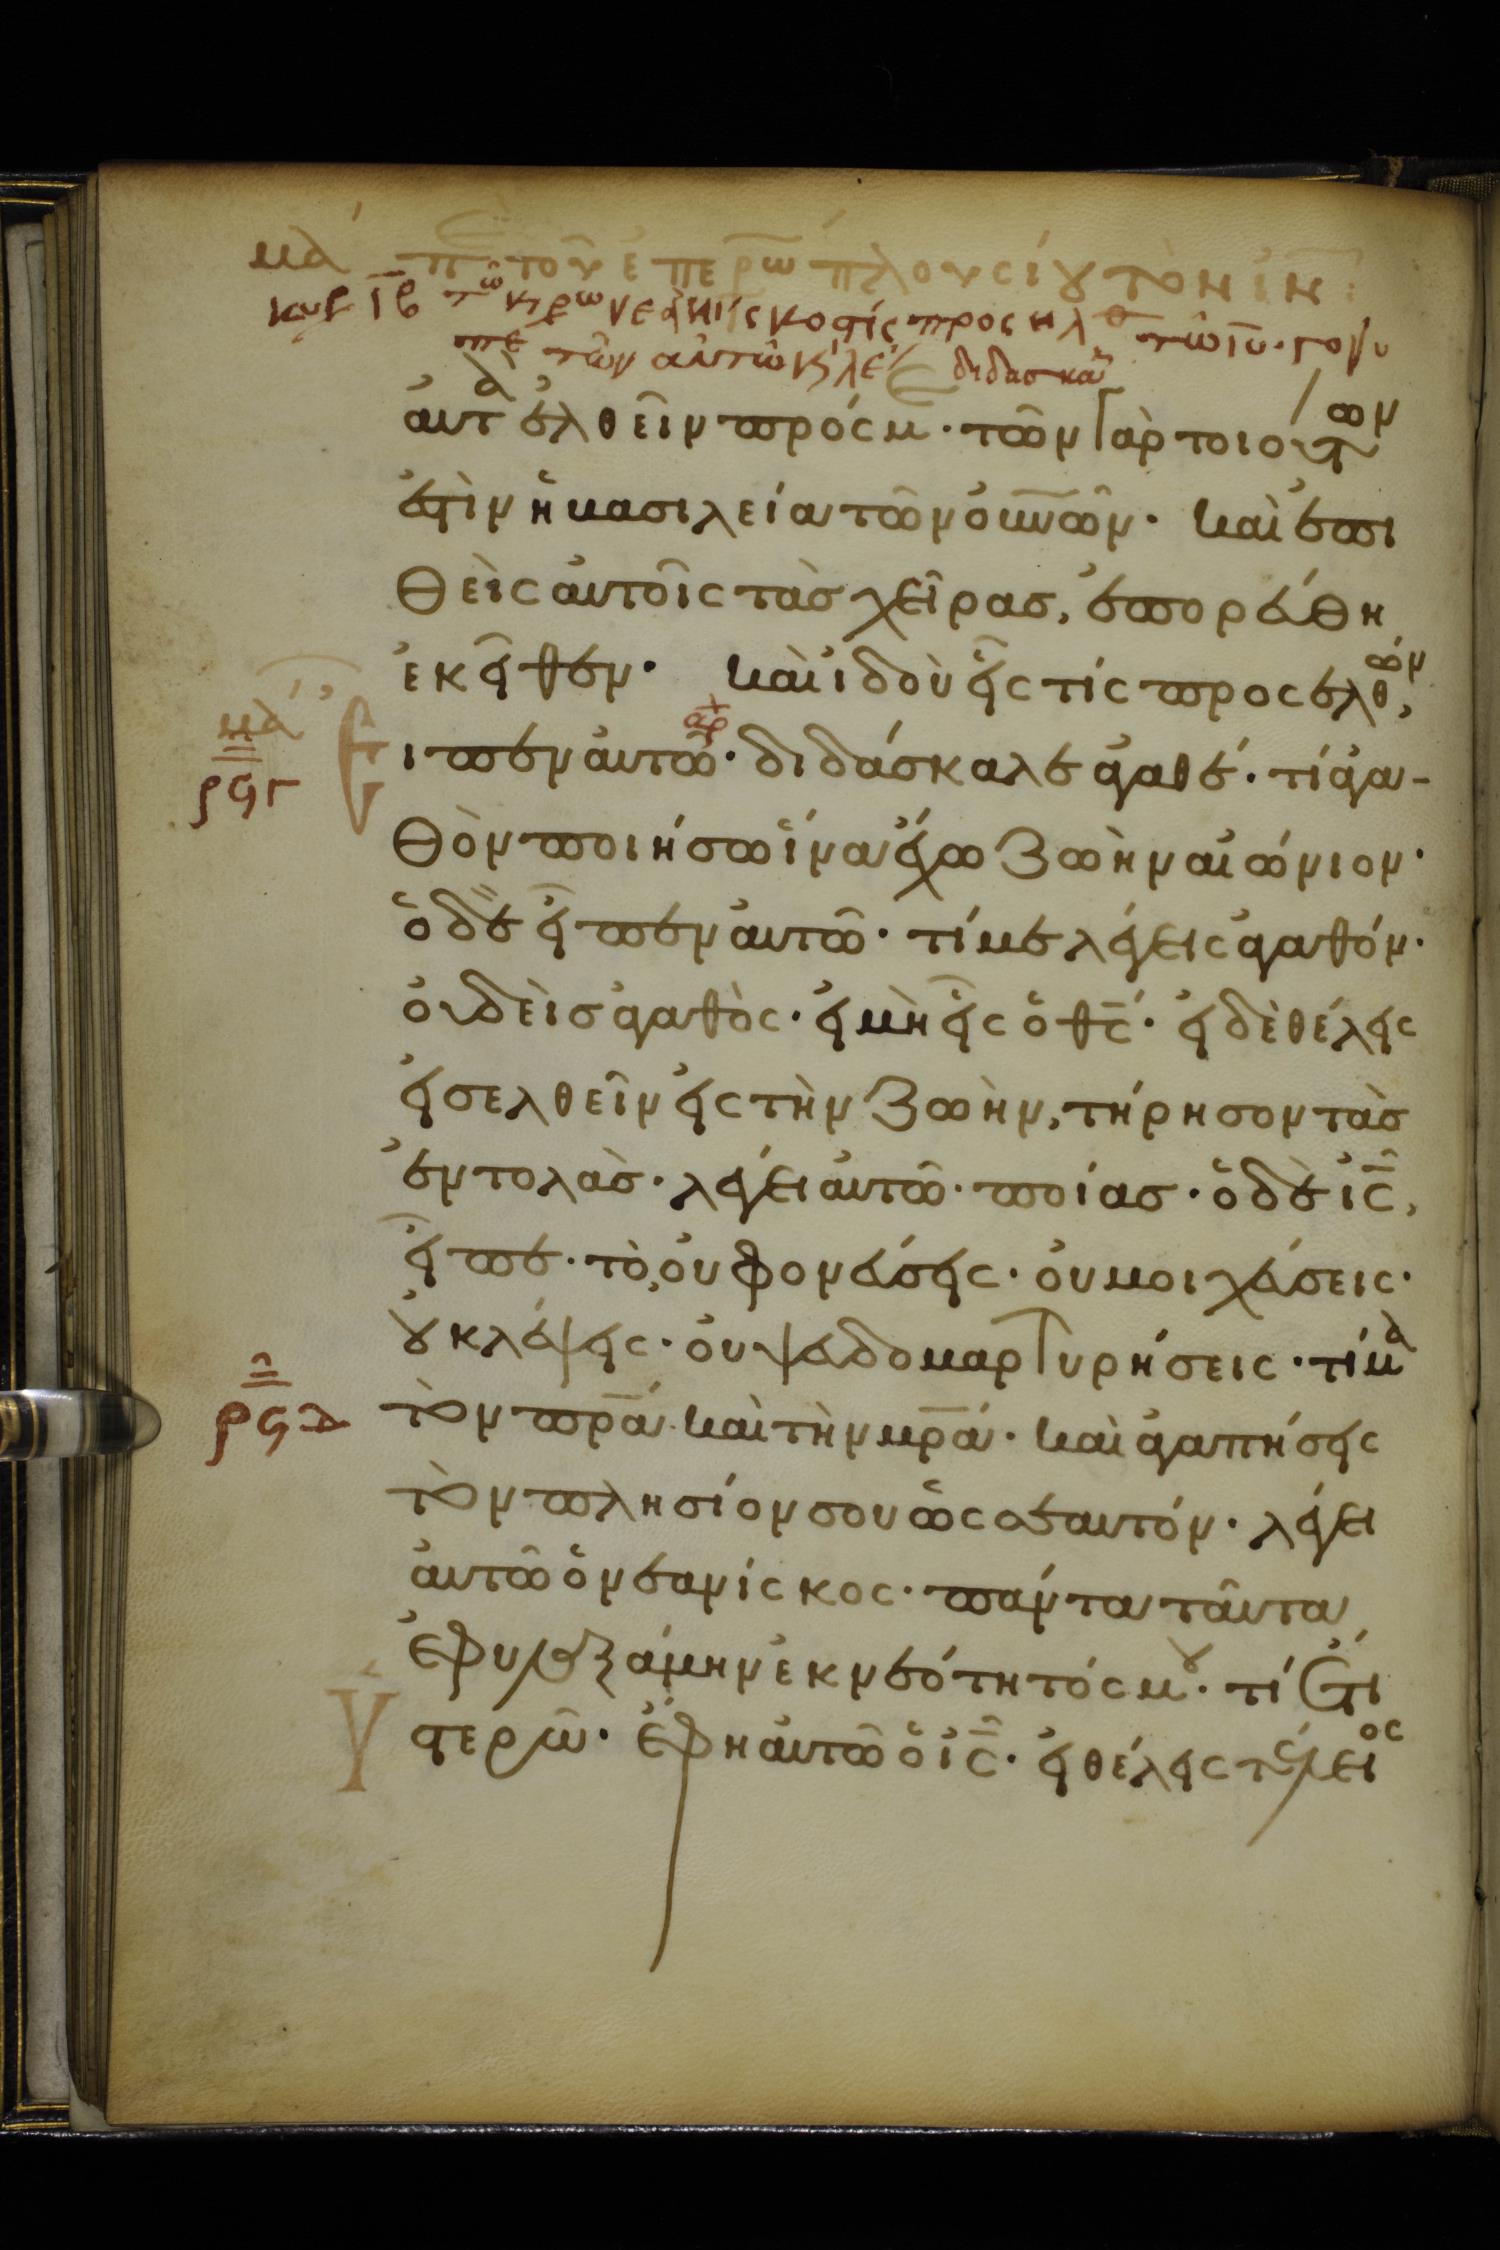 μα π του επερω πλουσιου τον ιν
κυρ ιβ τω κρω νεανισκος τις προσηλθ τω ιυ γονυ
πε των αυτω κ λε διδασκα
αυτὰ ἐλθεῖν πρός μ̅· τῶν γὰρ τοιούτων
ἐστὶν ἡ βασιλεία τῶν οὐν͞ων· καὶ ἐπι
θεὶς αὐτοῖς τὰς χεῖρας, ἐπορεύθη
ἐκεῖθεν· καὶ ἰδοὺ εἷς τίς προσελθών,
μα ρϟγ Εἶπεν αὐτῶ· αρχ διδάσκαλε ἀγαθέ· τί ἀγα-
θὸν ποιήσω ἵνα ἔχω ζωὴν αἰώνιον·
ὁ δὲ εἶπεν αὐτῶ· τί με λέγεις ἀγαθόν·
οὐδεὶς ἀγαθὸς· εἰ μὴ εἷς ὁ θ͞ς· εἰ δὲ θέλεις
εἰσελθεῖν εἰς τὴν ζωὴν, τήρησον τὰς
ἐντολάς· λέγει αὐτῶ· ποίας· ὁ δὲ ι͞ς,
εἶπε· τὸ, οὐ φονεύσεις· οὐ μοιχεύσεις·
οὐ κλέψεις· οὐ ψευδομαρτυρήσεις· τίμα
ρϟδ τὸν π͞ρα καὶ τὴν μ͞ρα· καὶ ἀγαπήσεις
τὸν πλησίον σου ὡς σεαυτόν· λέγει
αὐτῶ ὁ νεανίσκος· πάντα ταῦτα
ἐφυλαξάμην ἐκ νεότητός μου· τί ἔτι
Ὑστερῶ· ἔφη αὐτῶ ὁ ι͞ς· εἰ θέλεις τέλειος